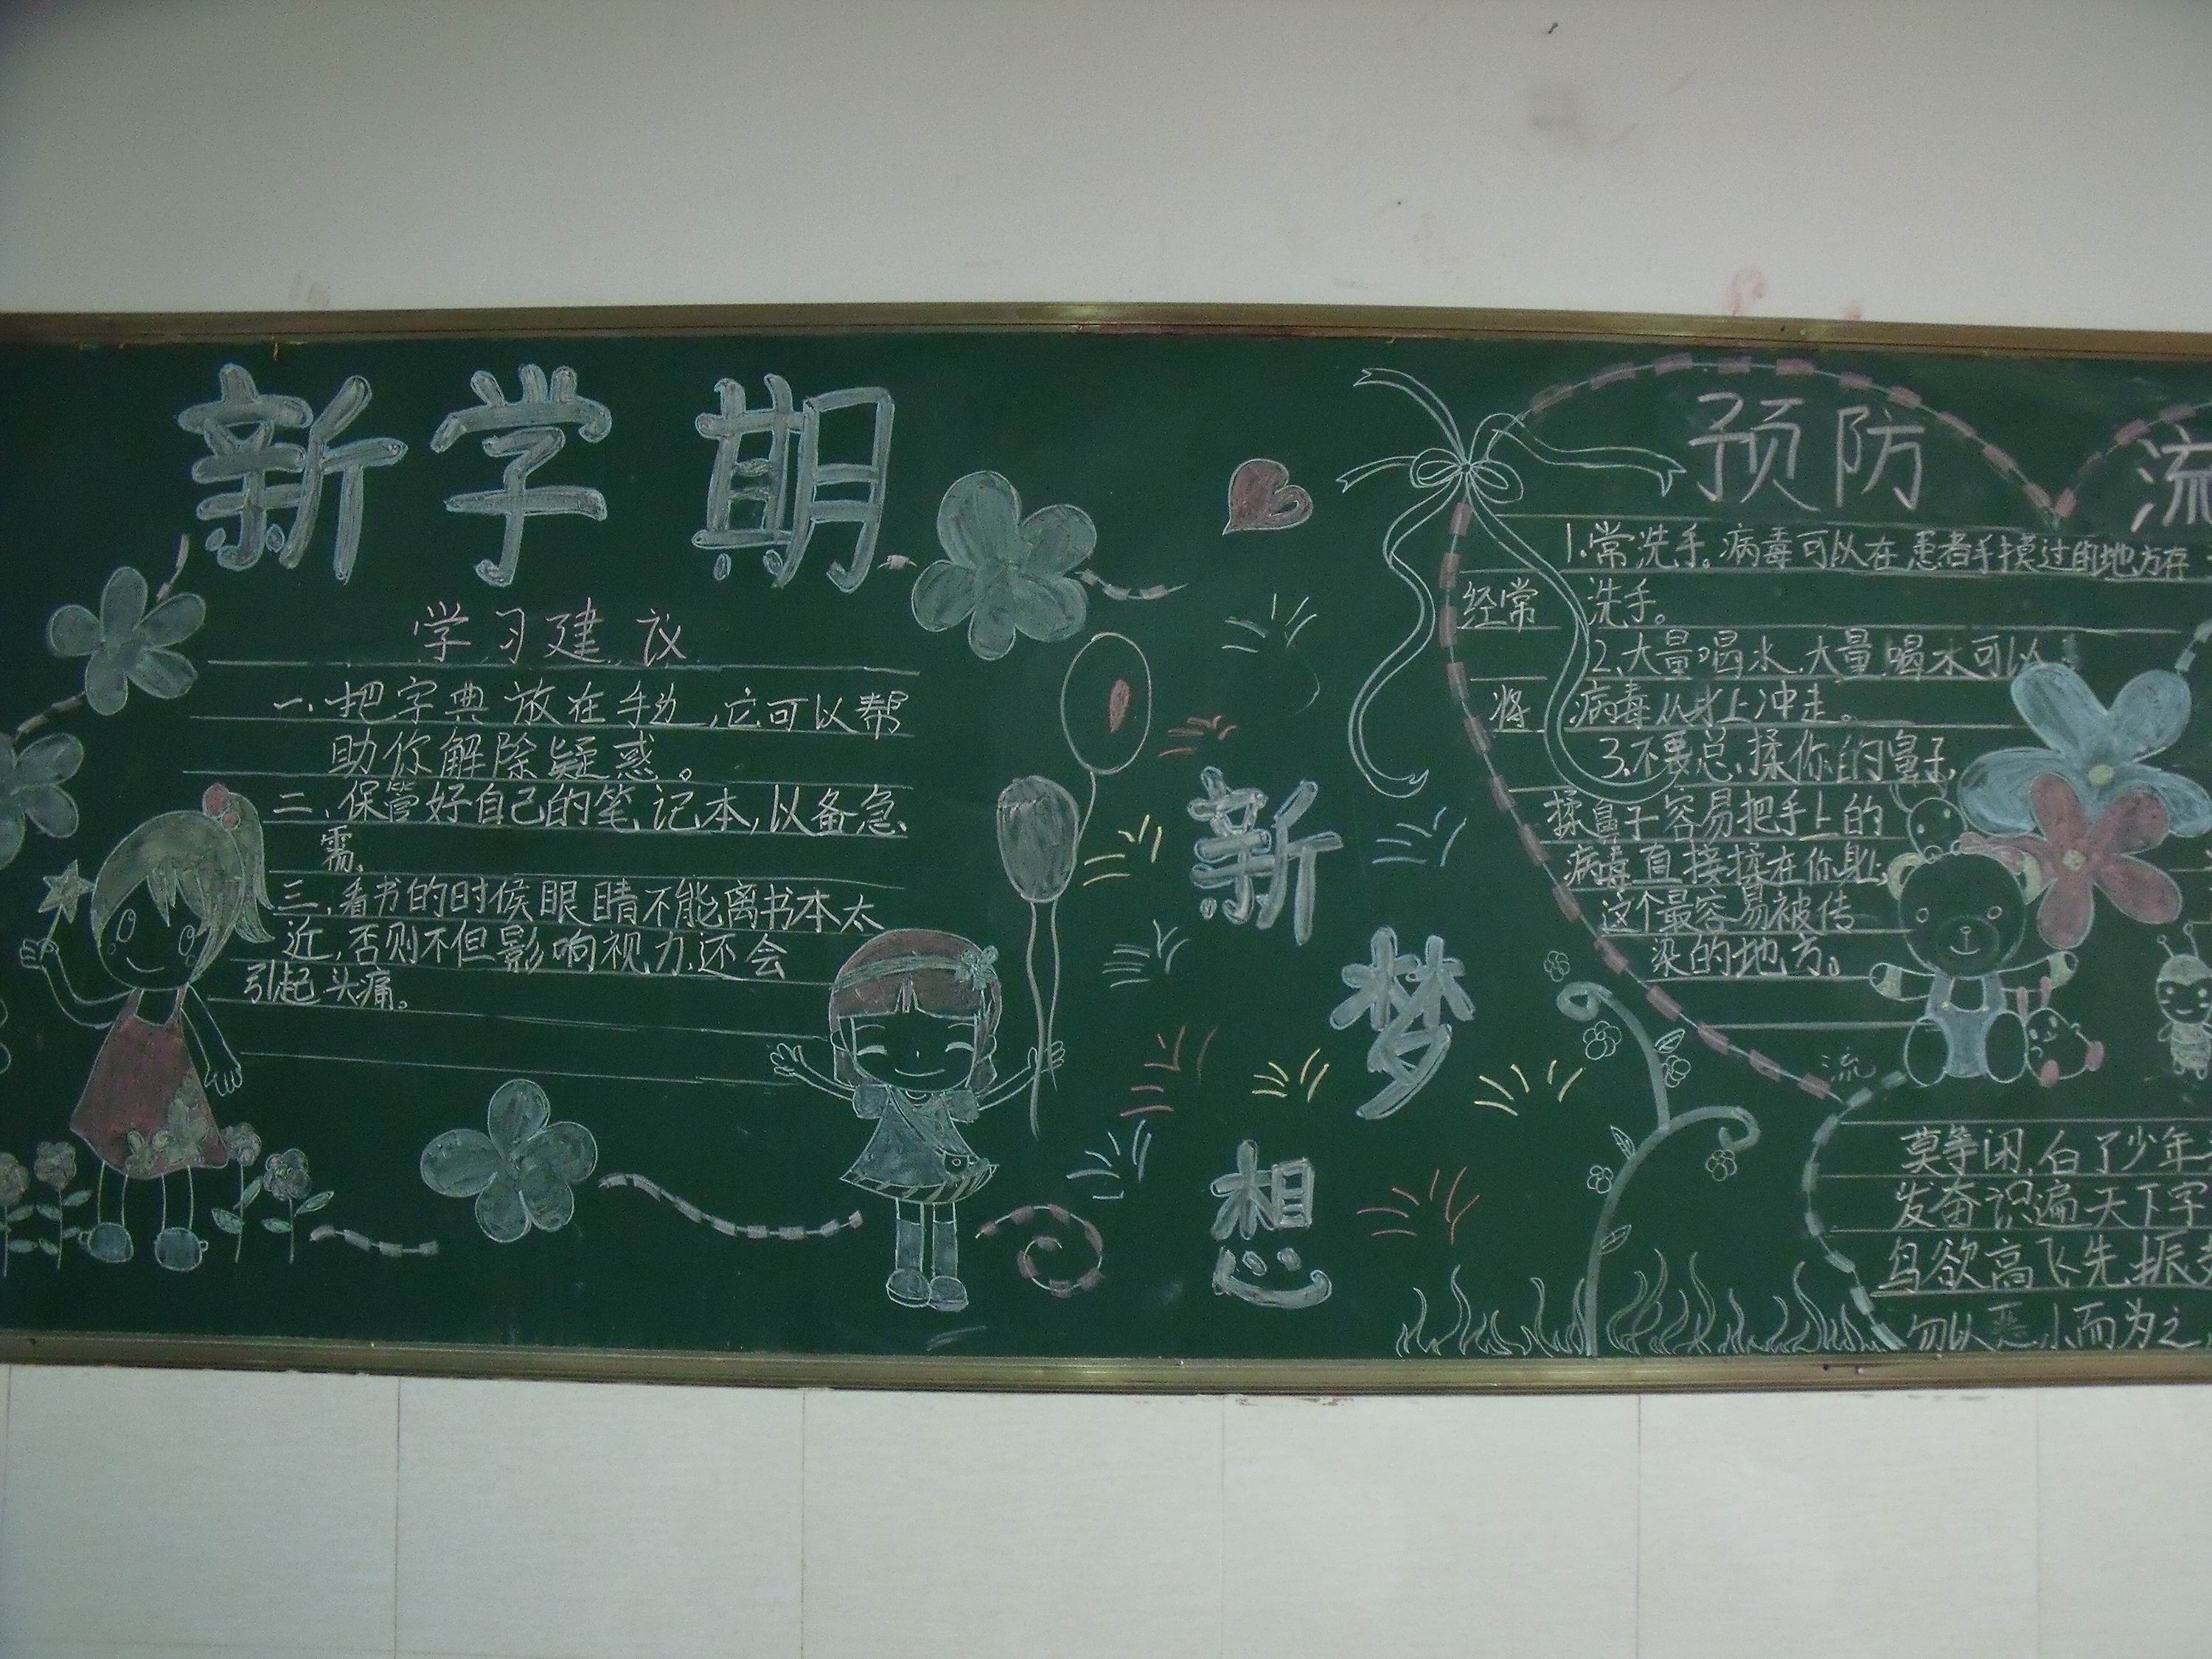 新学期
学习建议
一、把字典放在手边,它可以帮
助你解除疑惑。
二、保管好自己的笔记本,以备急
需。
三、看书的时候眼睛不能离书本太
近,否则不但影响视力,还会
引起头痛。
新
梦
想
预防 流
1.常洗手。病毒可以在患者手摸过的地方存
经常 洗手。
2.大量喝水.大量喝水可以
将 病毒从身上冲走。
3.不要总揉你的鼻子,
揉鼻子容易把手上的
病毒直接揉在你身上,
这个最容易被传
染的地方。
流
莫等闲,白了少年
发奋识遍天下字
鸟欲高飞先振
勿以恶小而为之